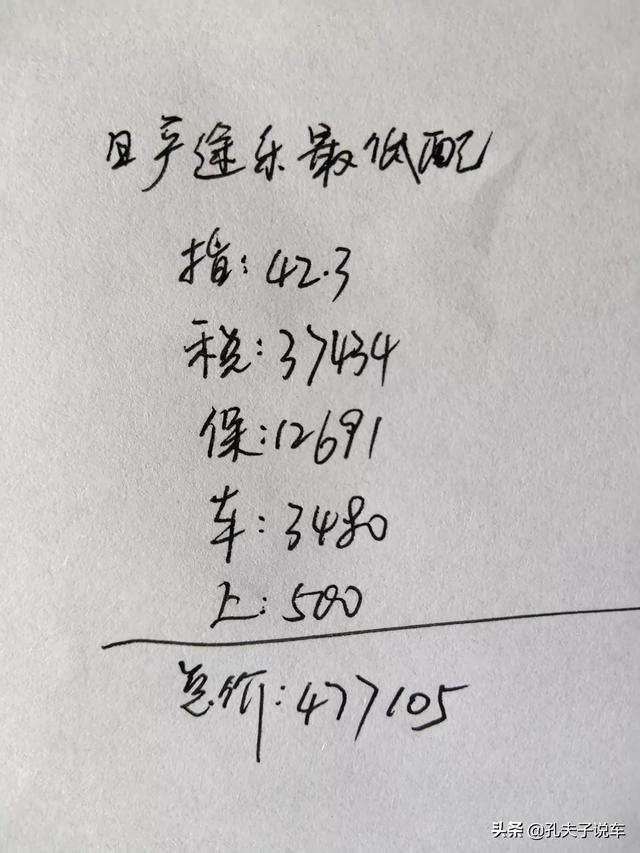 日产途乐最低配
指:42.3
税:37434
保:12691
车:3480
上:500
总价:477105
头条 @孔夫子说车